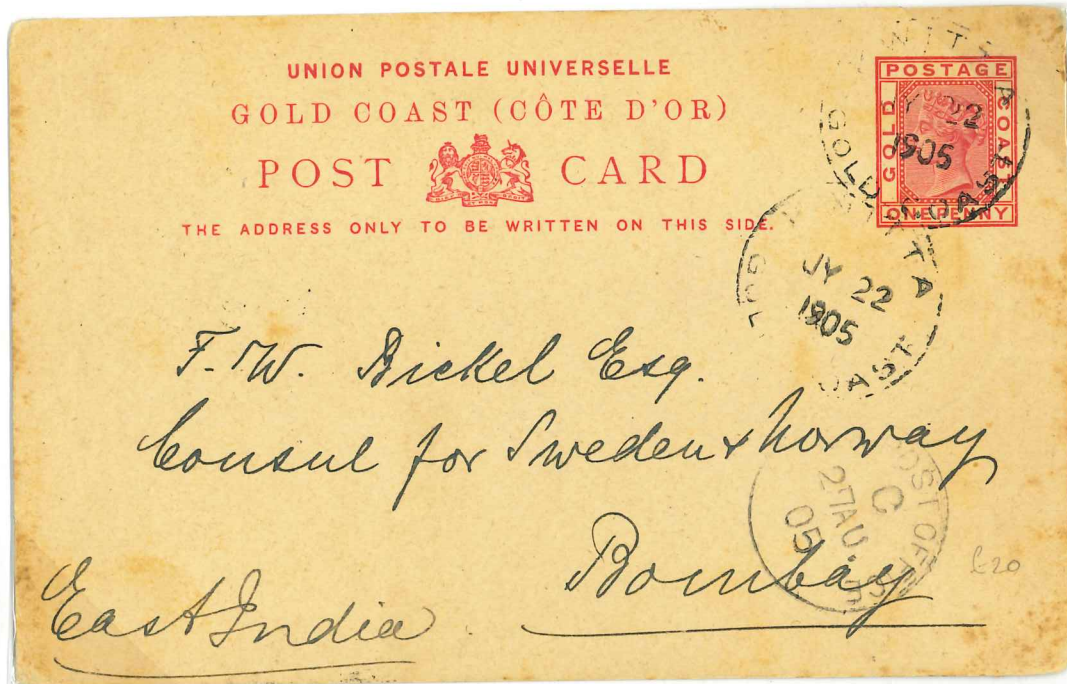 UNION POSTALE UNIVERSELLE
GOLD COAST (CÔTE D'OR)
POST CARD
THE ADDRESS ONLY TO BE WRITTEN ON THIS SIDE.
POSTAGE
GOLD COAST
ONE PENNY
22
1905
GOLD COAST
JY 22
1905
F. W. Bickel Esq.
Consul for Sweden & Norway
Bombay
East India
C
27 AU.
05
£20